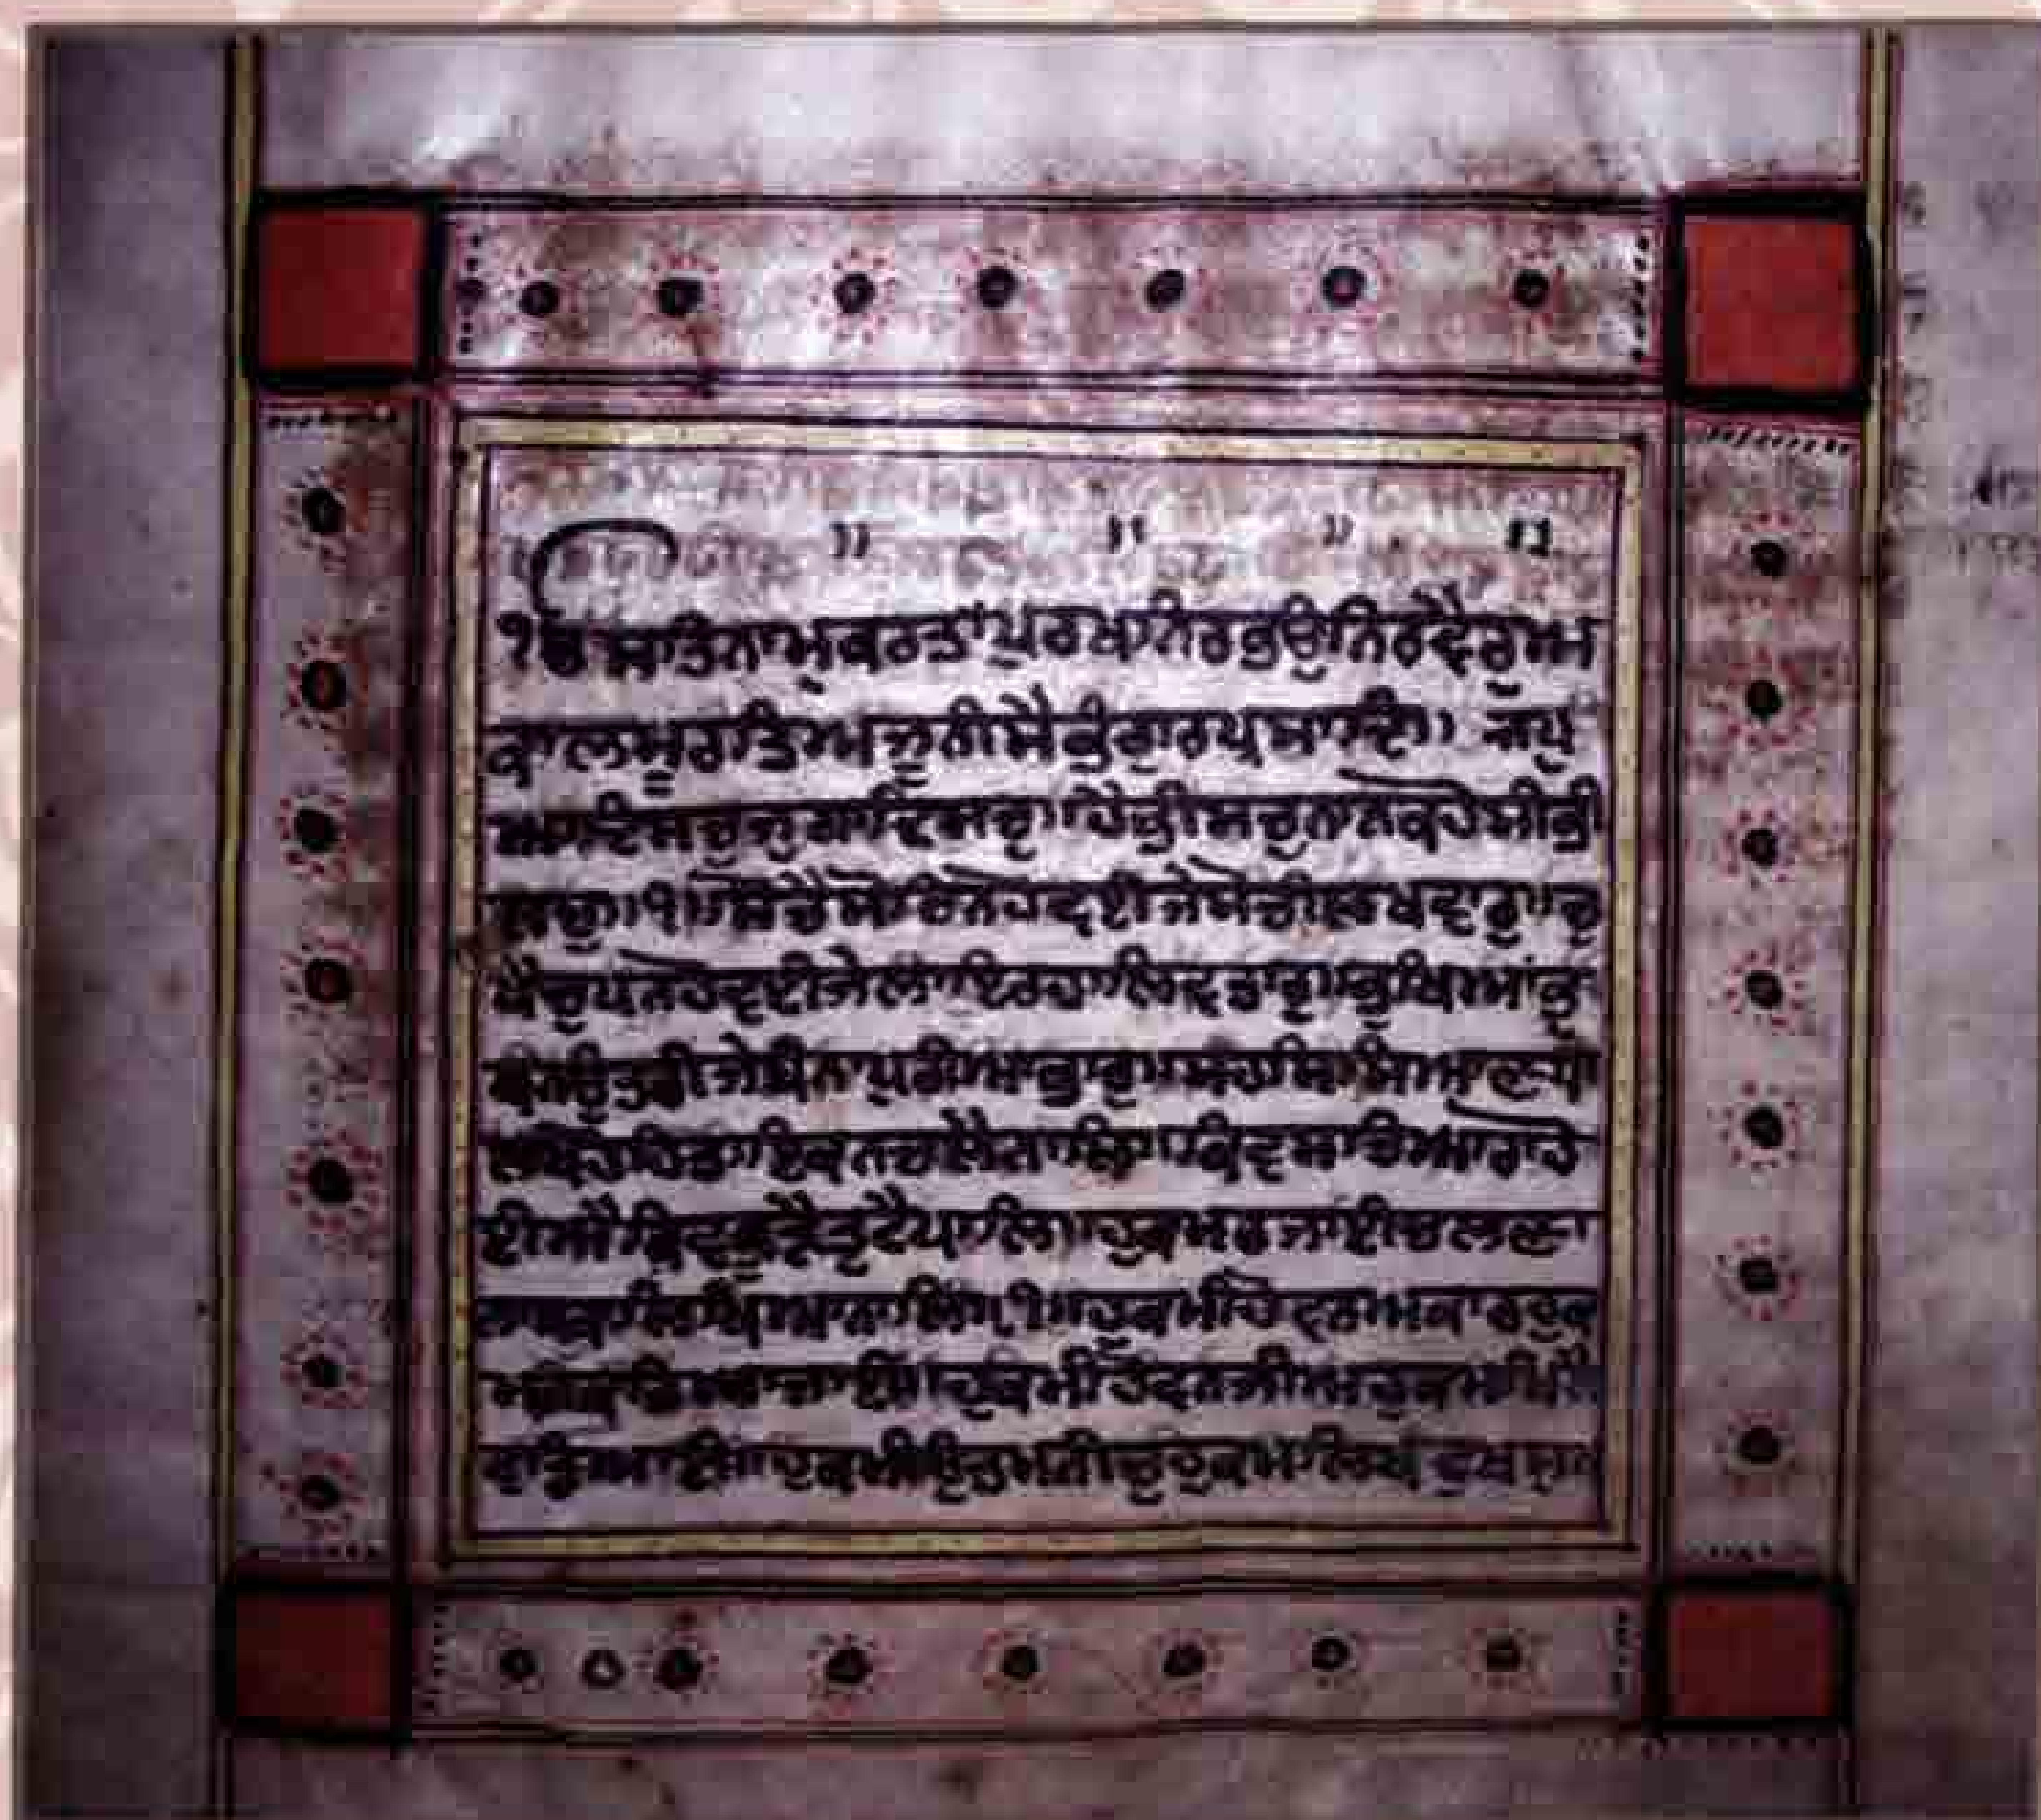 ੴ ਸਤਿਨਾਮੁਕਰਤਾਪੁਰਖੁਨਿਰਭਉਨਿਰਵੈਰੁਅ
ਕਾਲਮੂਰਤਿਅਜੂਨੀਸੈਭੰਗੁਰਪ੍ਰਸਾਦਿ॥ ਜਪੁ
ਆਦਿਸਚੁਜੁਗਾਦਿਸਚੁ॥ਹੈਭੀਸਚੁਨਾਨਕਹੋਸੀਭੀ
ਸਚੁ॥੧॥ਸੋਚੈਸੋਚਿਨਹੋਵਈਜੇਸੋਚੀਲਖਵਾਰ॥ਚੁ
ਪੈਚੁਪਨਹੋਵਈਜੇਲਾਇਰਹਾਲਿਵਤਾਰ॥ਭੁਖਿਆਭੁ
ਖਨਉਤਰੀਜੇਬੰਨਾਪੁਰੀਆਭਾਰ॥ਸਹਸਸਿਆਣਪਾ
ਲਖਹੋਹਿਤਾਇਕਨਚਲੈਨਾਲਿ॥ਕਿਵਸਚਿਆਰਾਹੋ
ਈਐਕਿਵਕੂੜੈਤੁਟੈਪਾਲਿ॥ਹੁਕਮਰਜਾਈਚਲਣਾ
ਨਾਨਕਲਿਖਿਆਨਾਲਿ॥੧॥ਹੁਕਮੀਹੋਵਨਆਕਾਰਹੁਕ
ਮੁਨਕਹਿਆਜਾਈ॥ਹੁਕਮੀਹੋਵਨਜੀਅਹੁਕਮੀਮਿਲੈ
ਵਡਿਆਈ॥ਹੁਕਮੀਉਤਮੁਨੀਚੁਹੁਕਮਿਲਿਖਿਦੁਖਸੁਖ